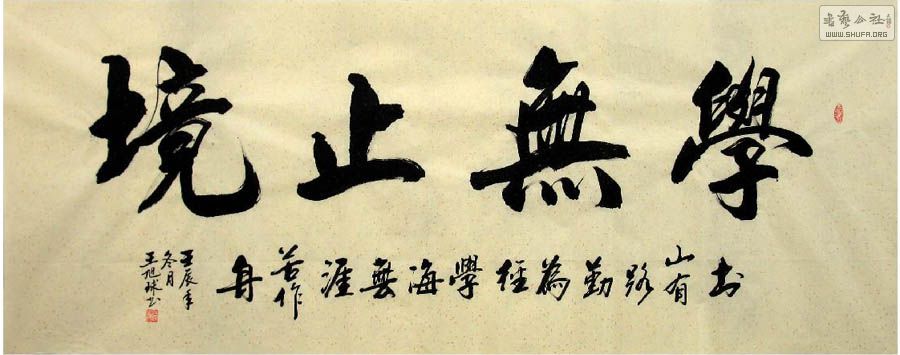 學無止境
書山有路勤為徑學海無涯苦作舟
壬辰年
冬月
王旭書
書藝公社
WWW.SHUFA.ORG